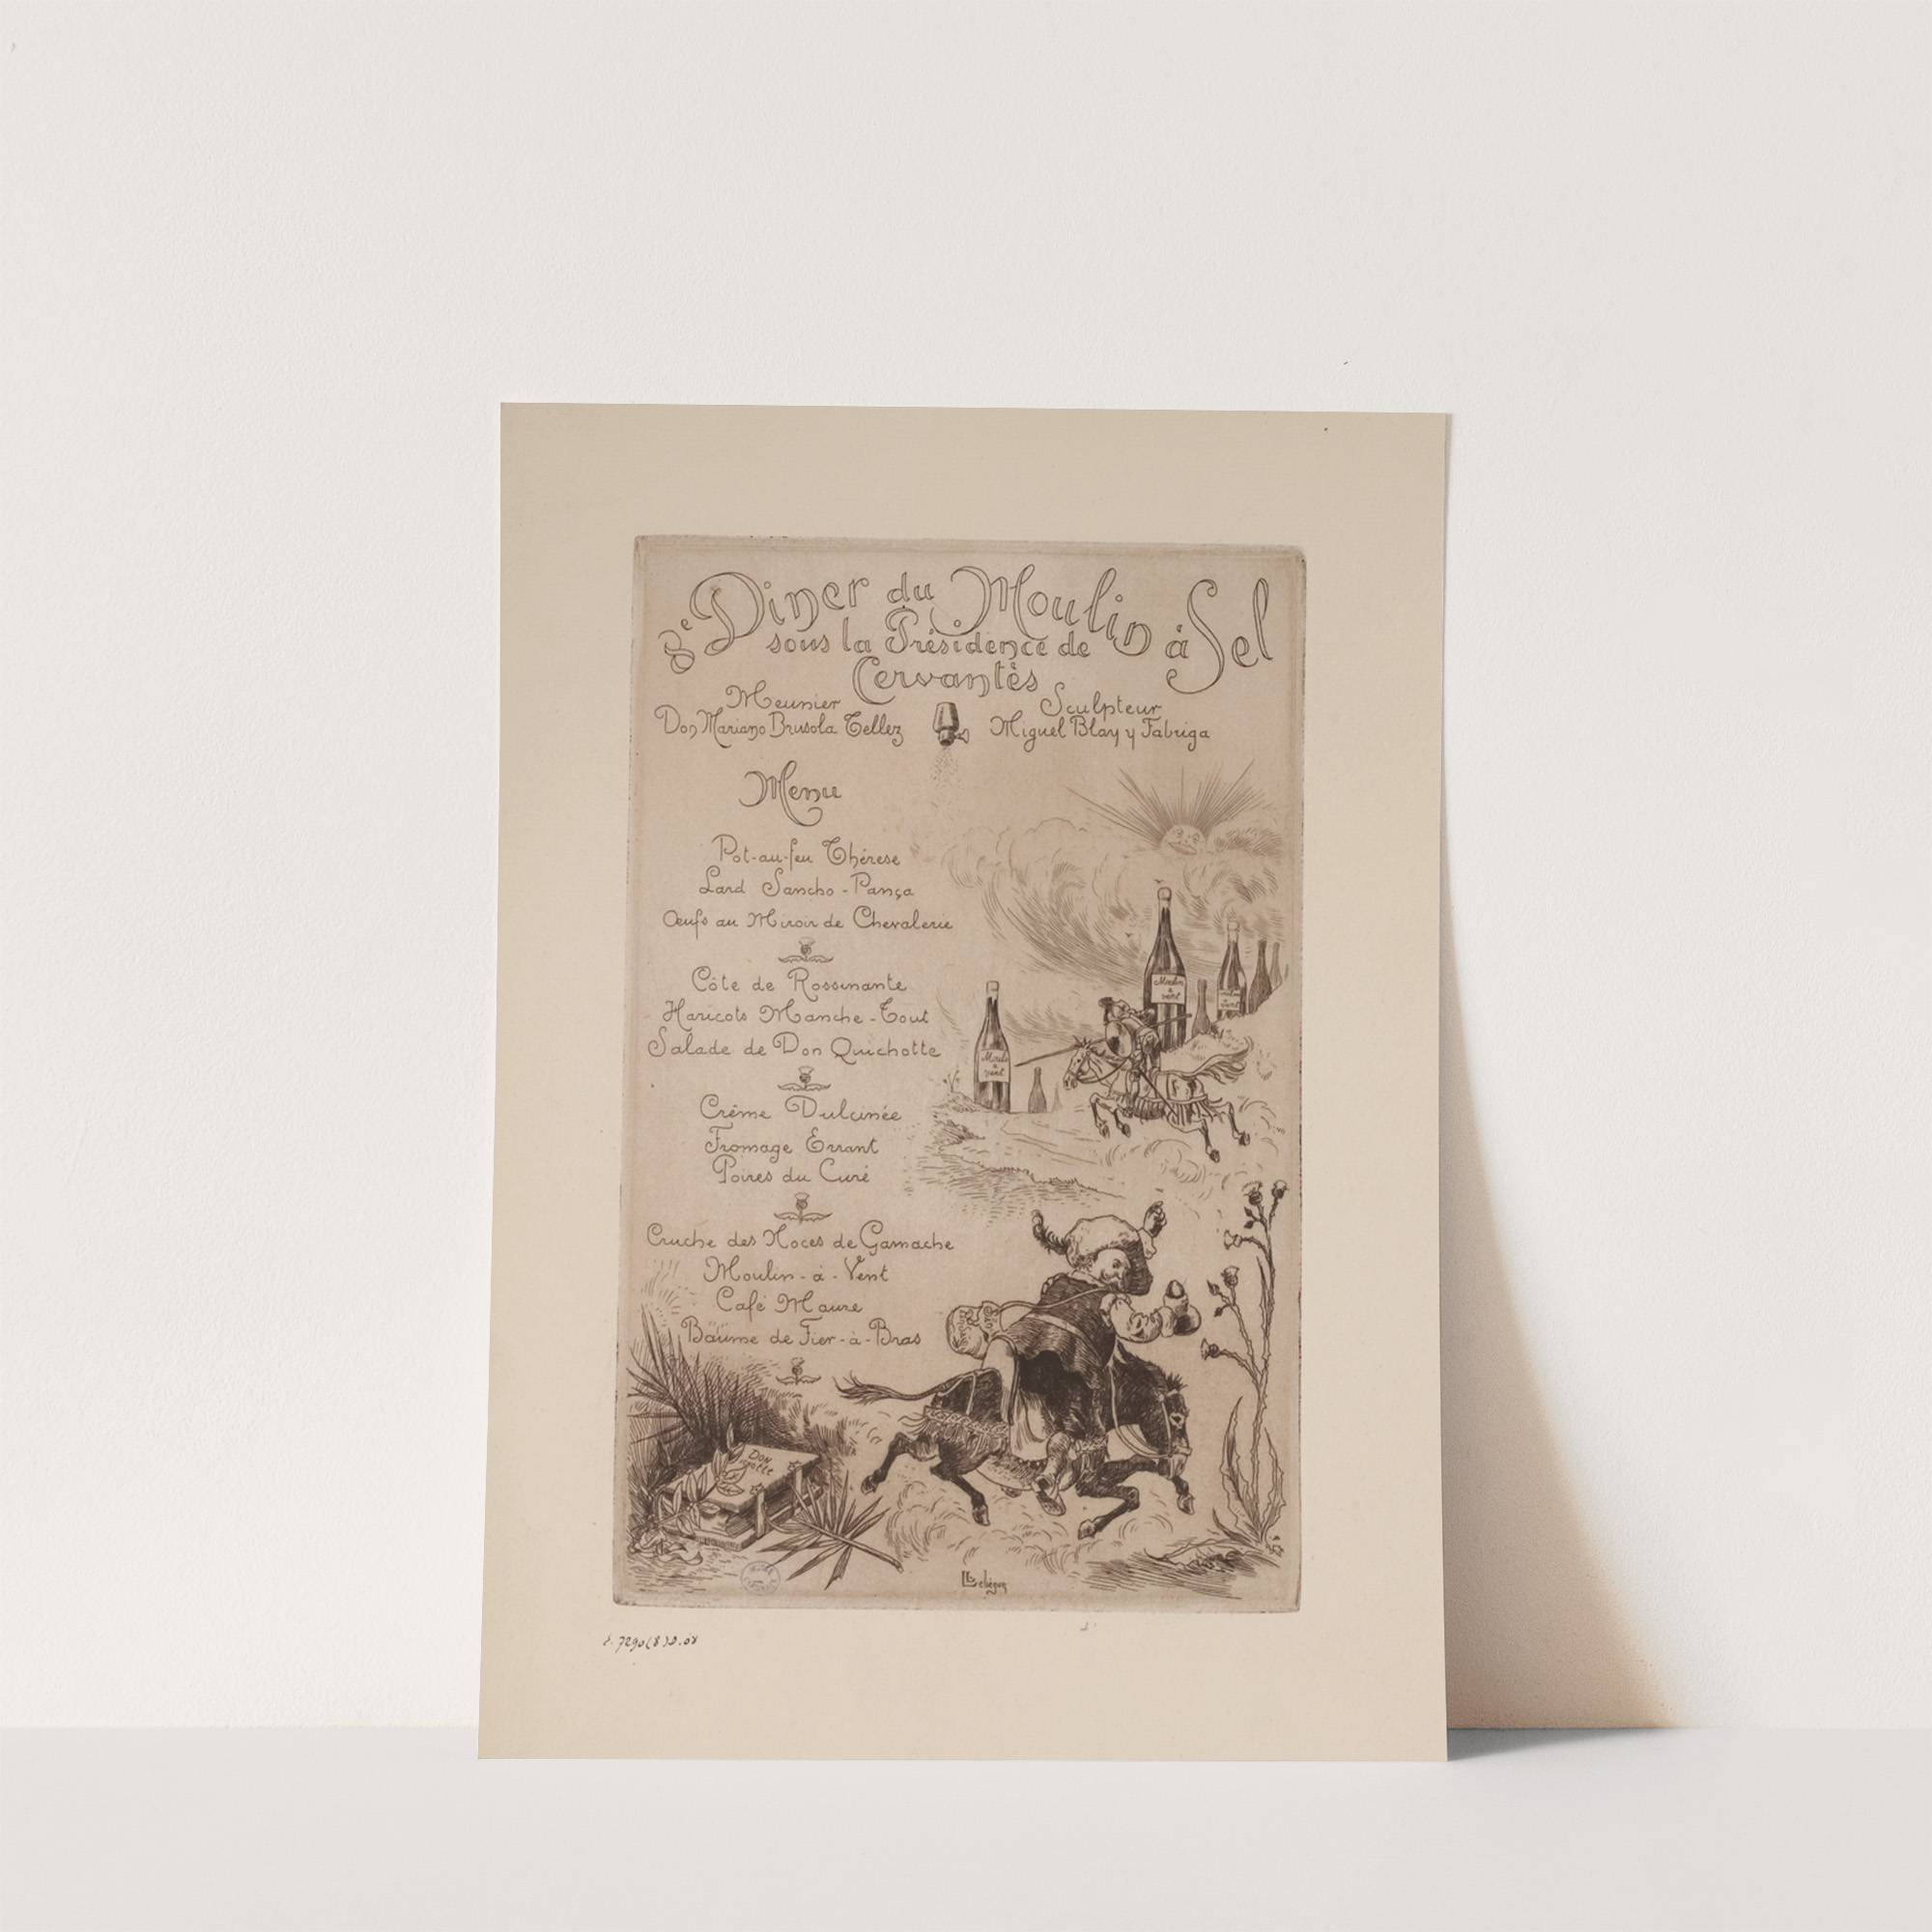 8e Diner du Moulin à Sel
sous la Présidence de
Cervantès
Meunier
Don Mariano Brusola Tellez
Sculpteur
Miguel Blay y Fabriga
Menu
Pot-au-feu Thérese
Lard Sancho-Pança
Œufs au Miroir de Chevalerie
Côte de Rossinante
Haricots Manche-Tout
Salade de Don Quichotte
Crême Dulcinée
Fromage Errant
Poires du Curé
Cruche des Noces de Gamache
Moulin-à-Vent
Café Maure
Baume de Fier-à-Bras
Moulin
à
vent
Moulin
à
vent
DON